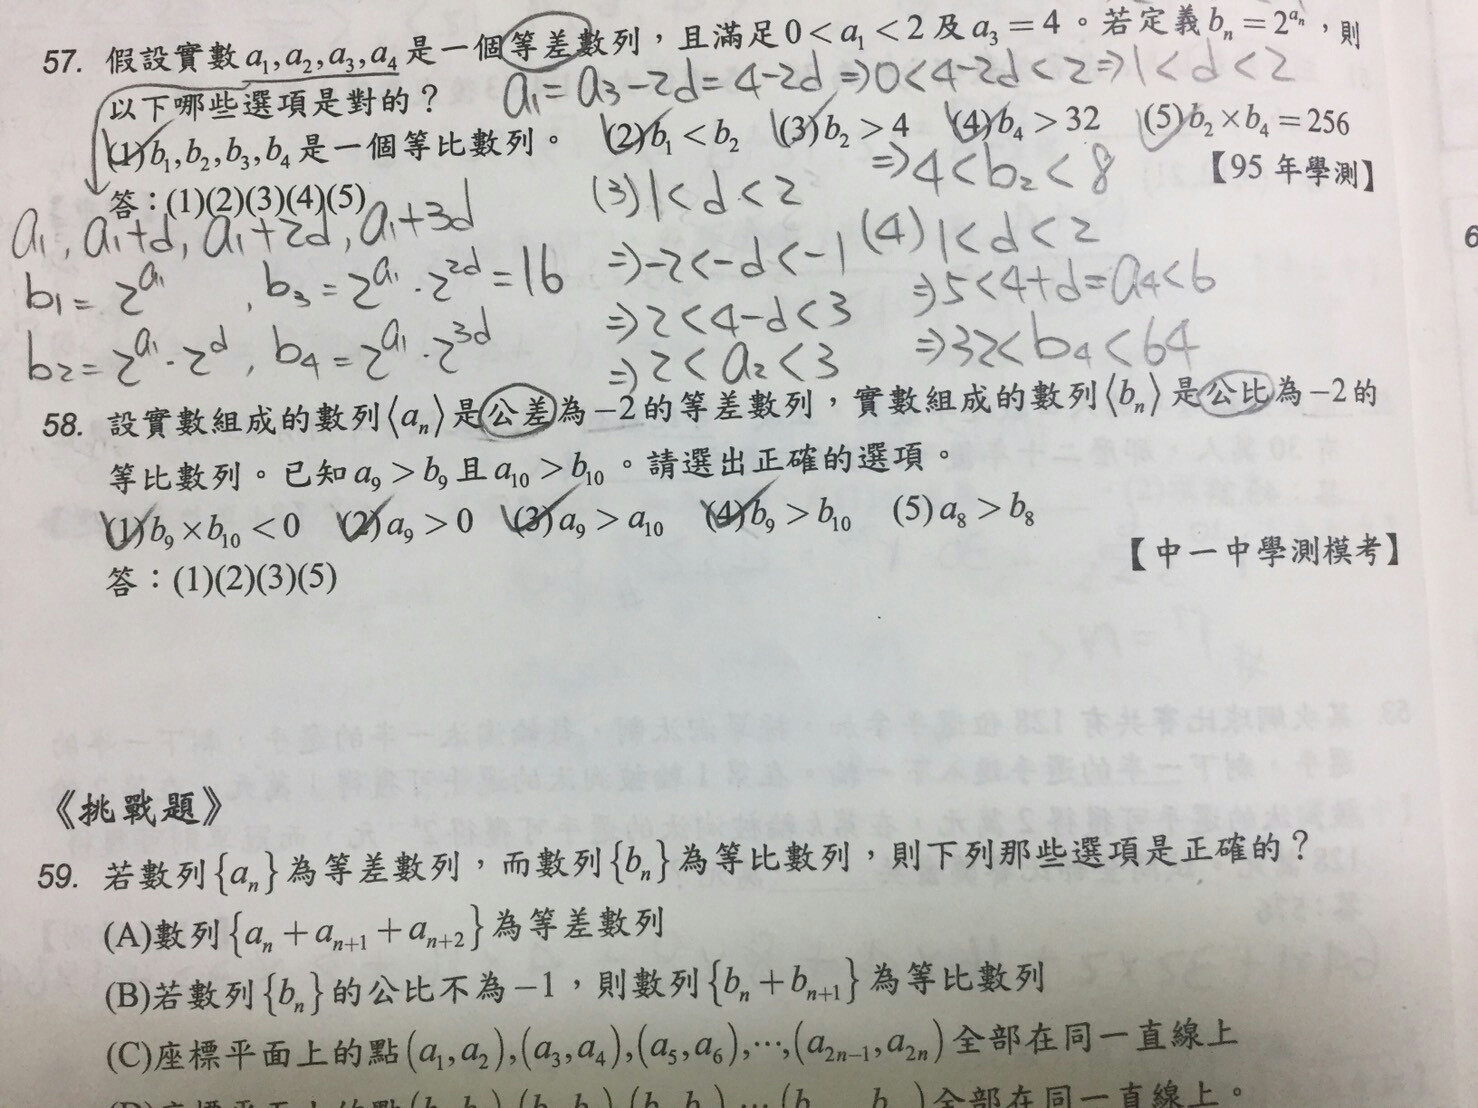 57. 假設實數 a₁,a₂,a₃,a₄ 是一個等差數列，且滿足 0<a₁<2 及 a₃=4。若定義 bₙ=2^{aₙ}，則
a₁=a₃-2d=4-2d⇒0<4-2d<2⇒1<d<2
以下哪些選項是對的？
(1) b₁,b₂,b₃,b₄ 是一個等比數列。 (2) b₁<b₂ (3) b₂>4 (4) b₄>32 (5) b₂×b₄=256
⇒4<b₂<8
【95 年學測】
答：(1)(2)(3)(4)(5)
a₁, a₁+d, a₁+2d, a₁+3d
b₁=2^{a₁}, b₃=2^{a₁}·2^{2d}=16
b₂=2^{a₁}·2^{d}, b₄=2^{a₁}·2^{3d}
(3) 1<d<2
⇒-2<-d<-1
⇒2<4-d<3
⇒2<a₂<3
(4) 1<d<2
⇒5<4+d=a₄<6
⇒32<b₄<64
58. 設實數組成的數列⟨aₙ⟩是公差為-2的等差數列，實數組成的數列⟨bₙ⟩是公比為-2的
等比數列。已知 a₉>b₉ 且 a₁₀>b₁₀。請選出正確的選項。
(1) b₉×b₁₀<0 (2) a₉>0 (3) a₉>a₁₀ (4) b₉>b₁₀ (5) a₈>b₈
【中一中學測模考】
答：(1)(2)(3)(5)
《挑戰題》
59. 若數列{aₙ}為等差數列，而數列{bₙ}為等比數列，則下列那些選項是正確的？
(A)數列{aₙ+aₙ₊₁+aₙ₊₂}為等差數列
(B)若數列{bₙ}的公比不為-1，則數列{bₙ+bₙ₊₁}為等比數列
(C)座標平面上的點(a₁,a₂),(a₃,a₄),(a₅,a₆),⋯,(a₂ₙ₋₁,a₂ₙ)全部在同一直線上
全部在同一直線上。
6